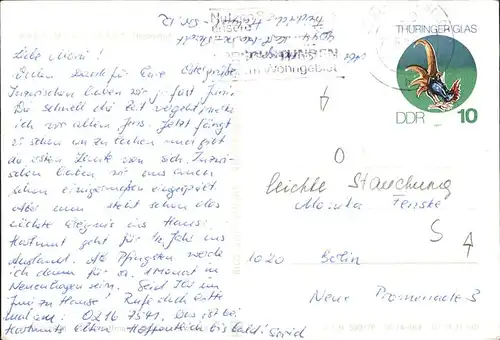 Liebe Moni!
Vielen Dank für Eure Ostergrüße.
Inzwischen haben wir ja fast Juni.
Die schnell die Zeit vergeht, merke
ich vor allem Jens. Jetzt fängt
er schon an zu lachen und gibt
die ersten Laute von sich. Inzwi-
schen haben wir uns auch
schon einigermaßen eingespielt
Aber nun steht schon das
nächste Ereignis ins Haus:
Hartmut geht für 1/2 Jahr ins
Ausland. Ab Pfingsten werde
ich dann für ca. 1 Monat in
Neuenhagen sein. Seid Ihr im
Juni zu Hause? Rufe doch bitte
mal an: 0216 7541. Das ist bei
Hartmuts Eltern. Hoffentlich bis bald! Sigrid
Wohngebiet
THÜRINGER GLAS
DDR 10
leichte Stauchung
Monika Fenske
1020 Berlin
Neue Promenade 3